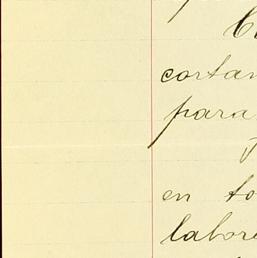 cortan
para
en to
labore